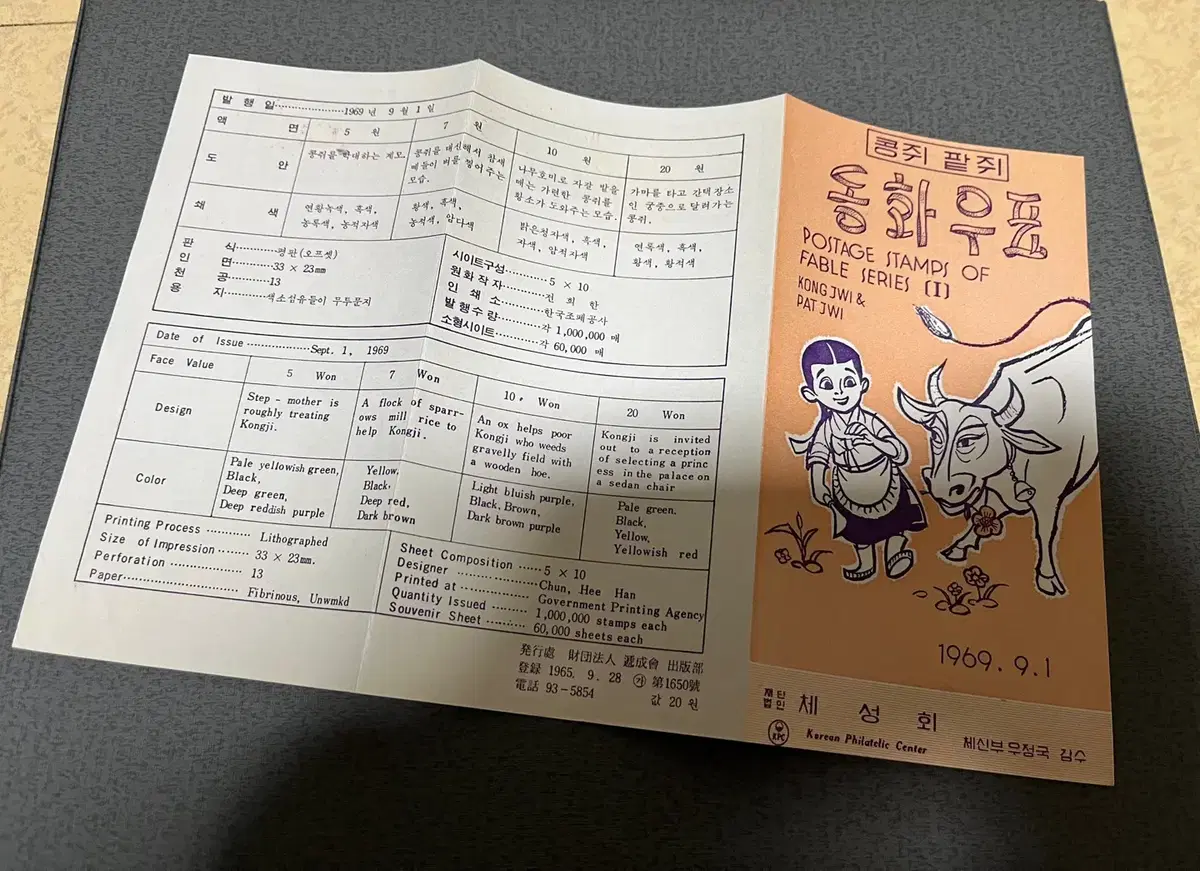 발 행 일 1969년 9월 1일
액 면 5 원 7 원 10 원 20 원
도 안
콩쥐를 학대하는 계모.
콩쥐를 대신해서 참새
떼들이 벼를 찧어주는
모습.
나무호미로 자갈 밭을
매는 가련한 콩쥐를
황소가 도와주는 모습.
가마를 타고 간택장소
인 궁중으로 달려가는
콩쥐.
쇄 색
연황녹색, 흑색,
농록색, 농적자색
황색, 흑색,
농적색, 암다색
밝은청자색, 흑색,
자색, 암적자색
연록색, 흑색,
황색, 황적색
판 식 평판(오프셋)
인 면 33 × 23mm
천 공 13
용 지 색소섬유들이 무투문지
시이트구성 5 × 10
원화작자 전 희 한
인 쇄 소 한국조폐공사
발행수량 각 1,000,000 매
소형시이트 각 60,000 매
Date of Issue Sept. 1, 1969
Face Value 5 Won 7 Won 10 Won 20 Won
Design
Step - mother is
roughly treating
Kongji.
A flock of sparr-
ows mill rice to
help Kongji.
An ox helps poor
Kongji who weeds
gravelly field with
a wooden hoe.
Kongji is invited
out to a reception
of selecting a princ
ess in the palace on
a sedan chair
Color
Pale yellowish green,
Black,
Deep green,
Deep reddish purple
Yellow,
Black,
Deep red,
Dark brown
Light bluish purple,
Black, Brown,
Dark brown purple
Pale green,
Black,
Yellow,
Yellowish red
Printing Process Lithographed
Size of Impression 33 × 23mm.
Perforation 13
Paper Fibrinous, Unwmkd
Sheet Composition 5 × 10
Designer Chun, Hee Han
Printed at Government Printing Agency
Quantity Issued 1,000,000 stamps each
Souvenir Sheet 60,000 sheets each
発行處 財団法人 遞成會 出版部
登録 1965. 9. 28 ㉮ 第1650號
電話 93-5854 값 20 원
콩쥐 팥쥐
동화우표
POSTAGE STAMPS OF
FABLE SERIES (I)
KONGJWI &
PATJWI
1969. 9. 1
재단
법인 체 성 회
KPC Korean Philatelic Center 체신부 우정국 감수